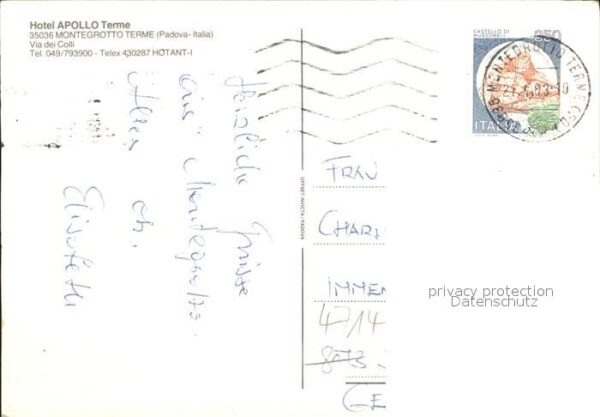 Hotel APOLLO Terme
35036 MONTEGROTTO TERME (Padova-Italia)
Via dei Colli
Tel. 049/793900 - Telex 430287 HOTANT-I
Herzliche Grüsse
aus Montegrotto
Elisabeth
OFFSET INVICTA - PADOVA
CASTELLO DI
350
ITALIA
35036 MONTEGROTTO TERME (PD)
FRAU
CHARL
IMMEN
4714
8
GE
privacy protection
Datenschutz